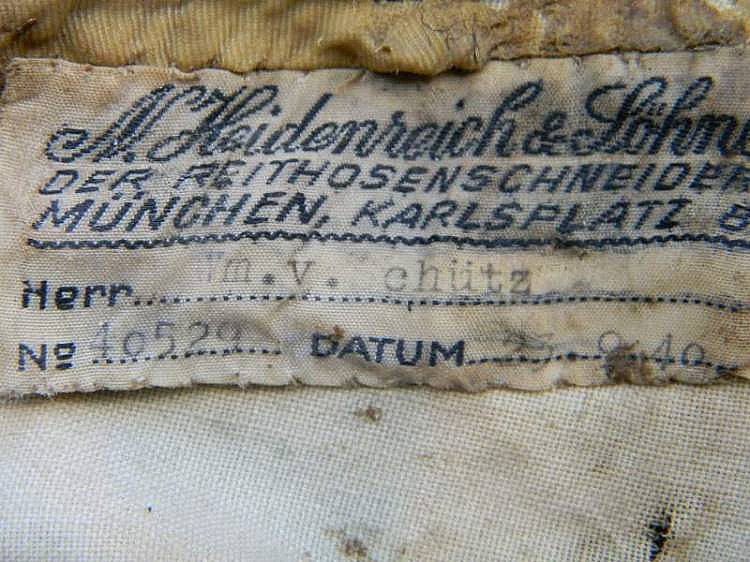 M. Heidenreich & Söhne
DER REITHOSENSCHNEIDER
MÜNCHEN, KARLSPLATZ 8
Herr m.v. chütz
Nº 40529 DATUM 9.40